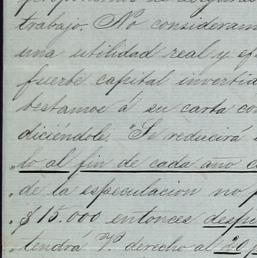 trabajo. No consideram
una utilidad real y ef
fuerte capital invertid
testamos á su carta con
diciendole, "Se reducirá
to al fin de cada año
de la especulacion no p
"$15.000 entonces despu
tendrá V. derecho al 20 p